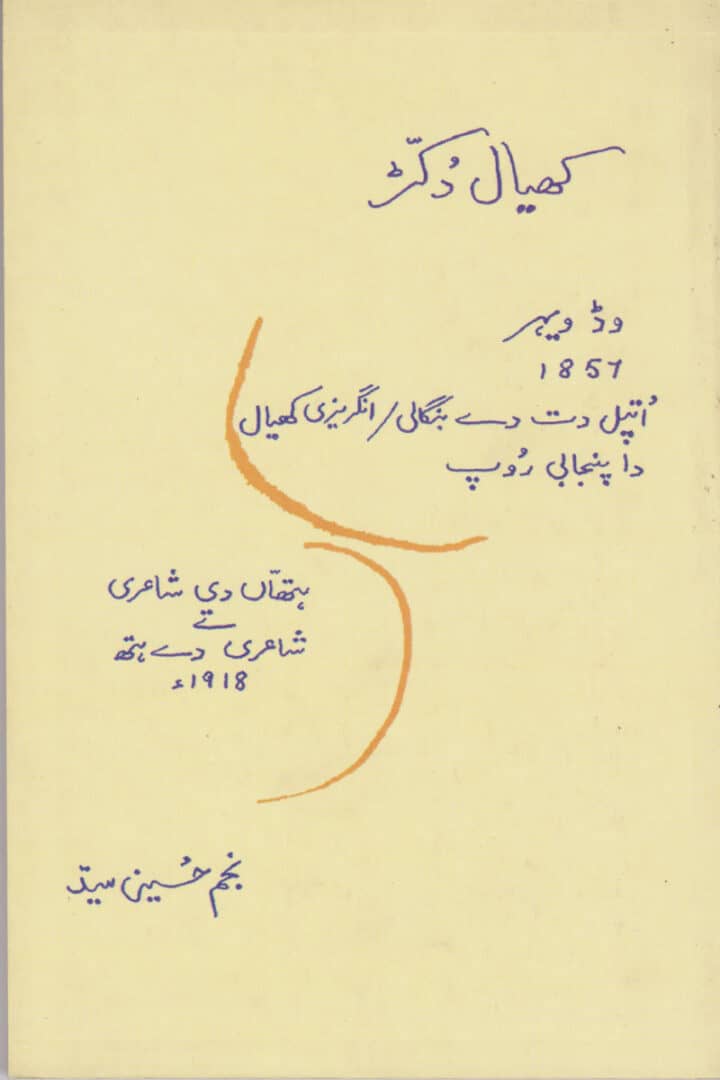 کھیال دُکّڑ
وڈ ویہر
1857
اُتپل دت دے بنگالی/انگریزی کھیال
دا پنجابی رُوپ
ہتھّاں دی شاعری
تے
شاعری دے ہتھ
1918ء
نجم حُسین سیّد